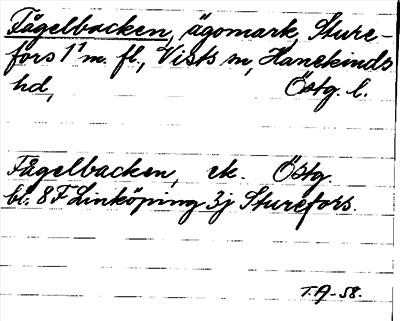 Fågelbacken, ägomark, Sture-
fors 1¹ m. fl., Vists sn, Hanekinds
hd, Östg. l.
Fågelbacken, ek. Östg.
bl. 8F Linköping 3j Sturefors
T.A-58.